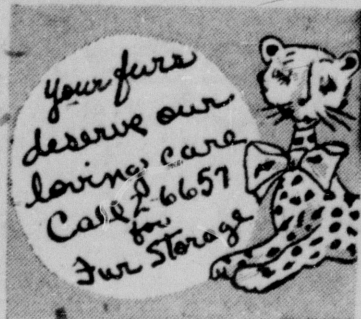 your furs
deserve our
loving care
Call 2-6657
for
Fur Storage